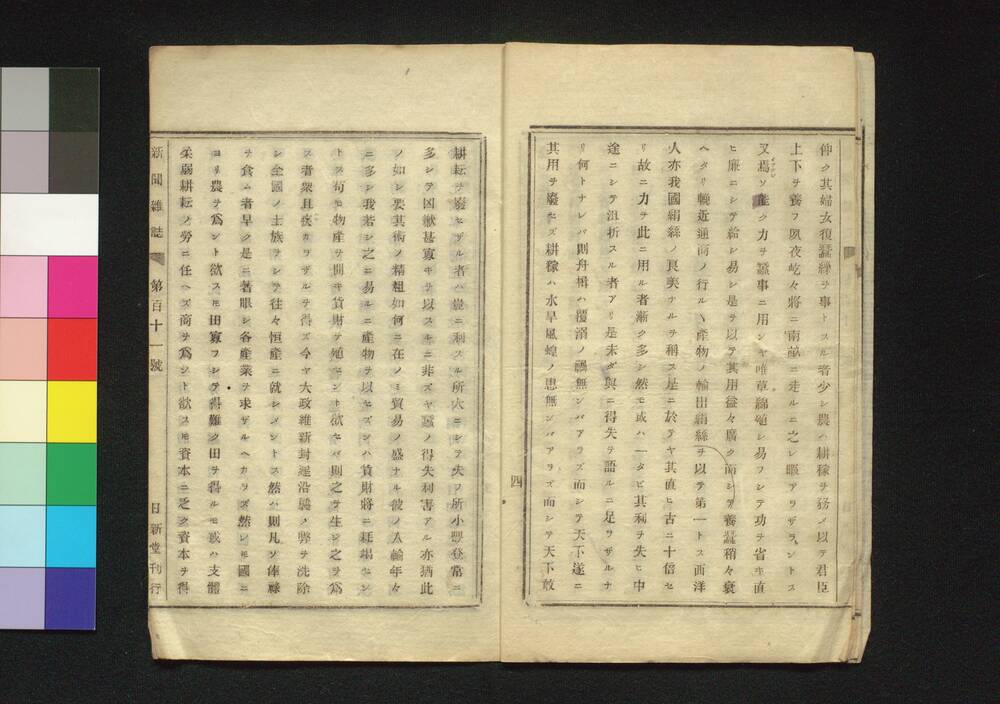 仲ク其婦女復蠶繰ヲ事トスル者少シ農ハ耕稼ヲ務メ以テ君臣
上下ヲ養フ夙夜屹々將ニ南畝ニ走ルニ之レ暇アラザラントス
又焉ソ能ク力ヲ蠶事ニ用ンヤ唯草綿殖シ易フシテ功ヲ省キ直
ヒ廉ニシテ給シ易シ是ヲ以テ其用益々廣ク而シテ養蠶稍々衰
ヘタリ輓近通商ノ行ルヽ產物ノ輸出絹絲ヲ以テ第一トス西洋
人亦我國絹絲ノ良美ナルヲ稱ス是ニ於テヤ其直ヒ古ニ十倍セ
リ故ニ力ヲ此ニ用ル者漸ク多シ然モ或ハ一タビ其利ヲ失ヒ中
途ニシテ沮折スル者アリ是未ダ與ニ得失ヲ語ルニ足ラザルナ
リ何トナレバ則舟楫ハ覆溺ノ禍無ンバアラズ而シテ天下遂ニ
其用ヲ廢セズ耕稼ハ水旱風蝗ノ患無ンバアラズ而シテ天下敢
四
耕耘ヲ廢セザル者ハ豈ニ利スル所大ニシテ失フ所小豐登常ニ
多シテ凶歉甚寡キヲ以スルニ非ズヤ蠶ノ得失利害アル亦猶此
ノ如シ要其術ノ精粗如何ニ在ノミ貿易ノ盛ナル彼ノ入輸年々
ニ多シ我若シ之ニ易ルニ產物ヲ以セズンハ貨財將ニ耗竭セン
トス苟モ物產ヲ開キ貨財ヲ殖セント欲セバ則之ヲ生シ之ヲ爲
ス者衆且疾カラザルヲ得ズ今ヤ大政維新封建沿襲ノ弊ヲ洗除
シ全國ノ士族ヲシテ往々恒產ニ就シメントス然ハ則凡ソ俸祿
ヲ食ム者早ク是ニ著眼シ各產業ヲ求ザルヘカラズ然レモ國ニ
ヨリ農ヲ爲ント欲スモ田寡フシテ得難ク田ヲ得ルモ或ハ支體
柔弱耕耘ノ勞ニ任ヘズ商ヲ爲ント欲スモ資本ニ乏ク資本ヲ得
新聞雜誌 第百十一號 日新堂刊行